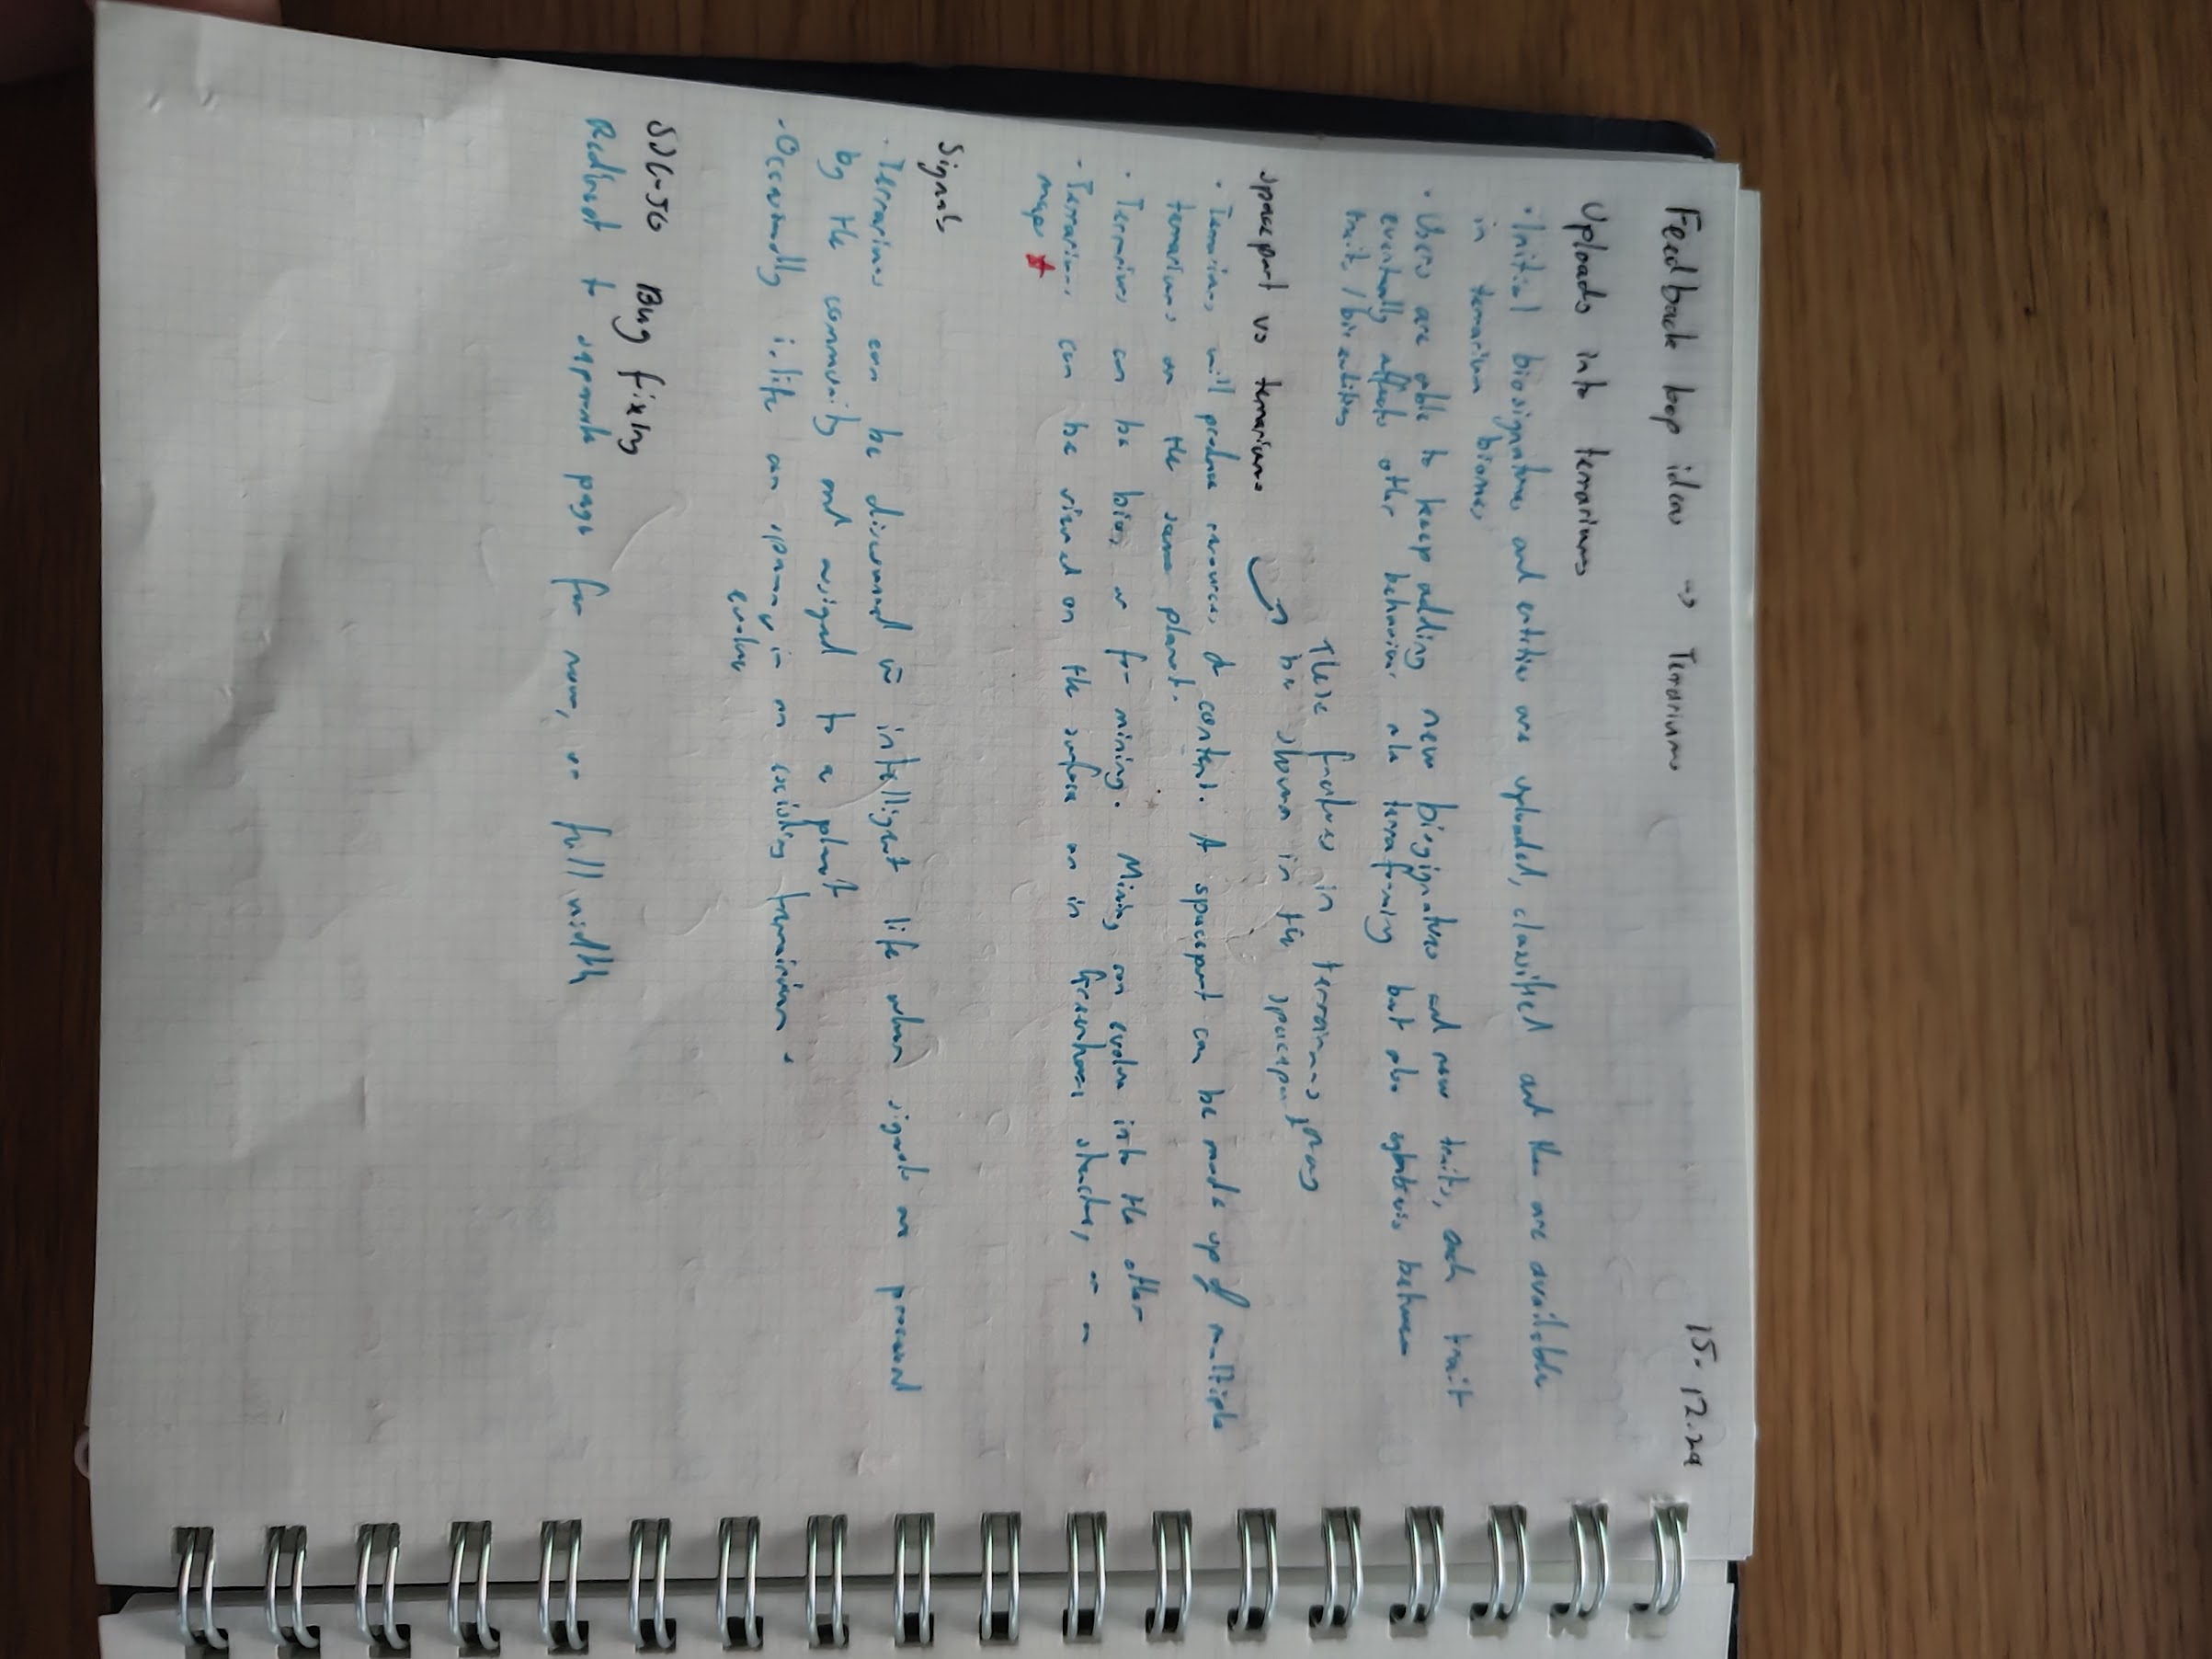 Feedback loop ideas → Terrariums
15.12.24
Uploads into terrariums
· Initial biosignatures and entities are uploaded, classified and then are available
in terrarium biomes
· Users are able to keep adding new biosignatures and new traits, each trait
eventually affects other behaviour, ala terraforming but also symbiosis between
traits/bio entities
spaceport vs terrariums
These features in terrariums may
be shown in the spaceport
· Terrariums will produce resources & content. A spaceport can be made up of multiple
terrariums on the same planet.
· Terrariums can be bio, or for mining. Mining can evolve into the other
· Terrariums can be viewed on the surface or in Greenhouse structure, or on
map
Signals
· Terrariums can be discovered w intelligent life when signals are processed
by the community and assigned to a planet
· Occasionally i. life can in an existing terrarium.
evolve
Bug fixing
Redirect to separate page for now, or full width